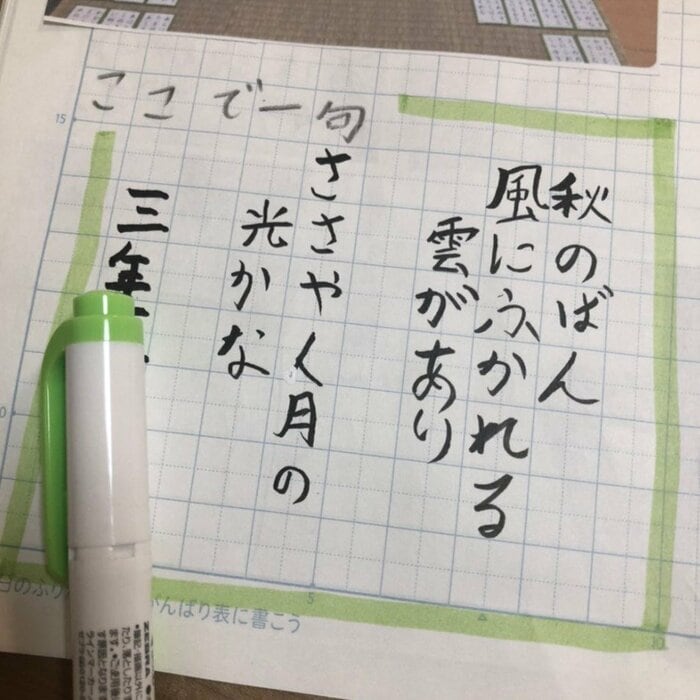 ここで一句
秋のばん
風にふかれる
雲があり
ささやく月の
光かな
三年
15
10
5
がんばり表に書こう
ZEBRA
ラインマーカー